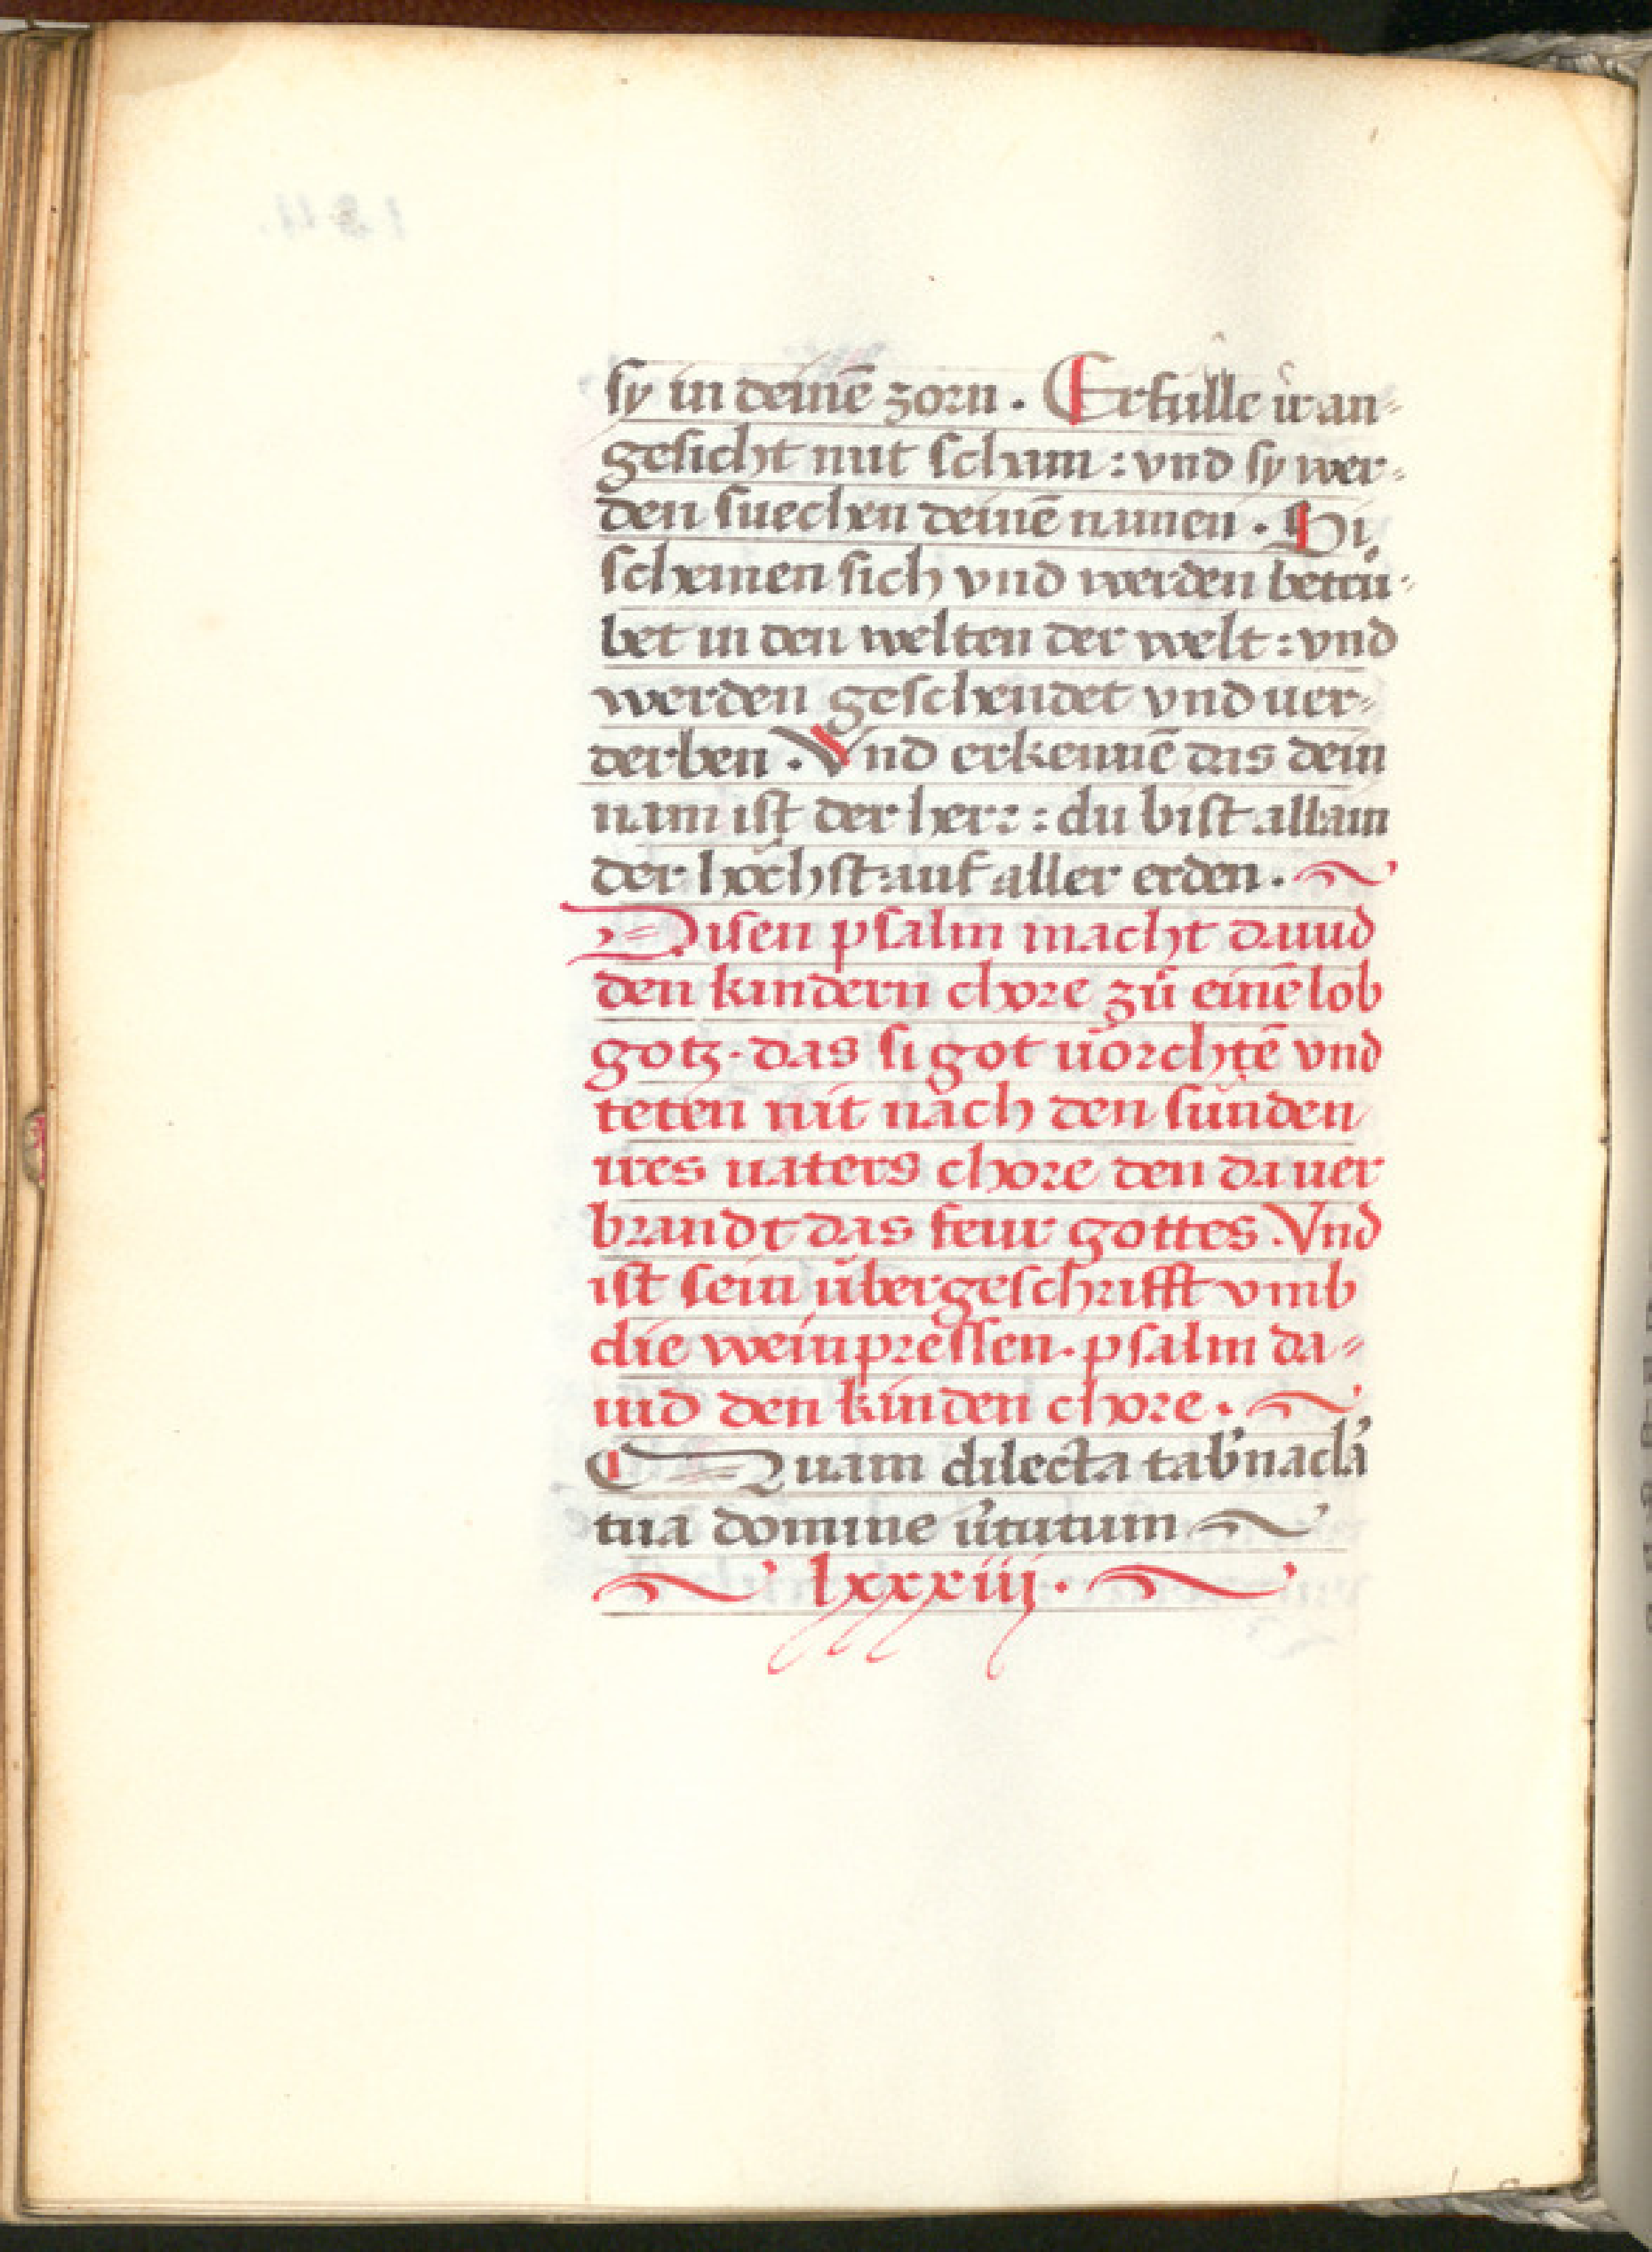 sy in deinē zorn . Erfulle ir an⸗
gesicht mit scham : vnd sy wer⸗
den suechen deinē namen . Si
schemen sich vnd werden betrů⸗
bet in den welten der welt : vnd
werden geschendet vnd uer⸗
derben . Vnd erkennē das dein
nam ist der herr : du bist allain
der höchst auf aller erden .
Disen psalm macht dauid
den kindern chore zů einē lob
gotz . das si got uörchtē vnd
teten nit nach den sünden
ires uaters chore den da uer
brandt das feur gottes . Vnd
ist sein übergeschrifft vmb
die weinpressen . psalm da⸗
uid den kinden chore .
Quam dilecta tab'nacl'a
tua domine u'tutum
lxxxiij .